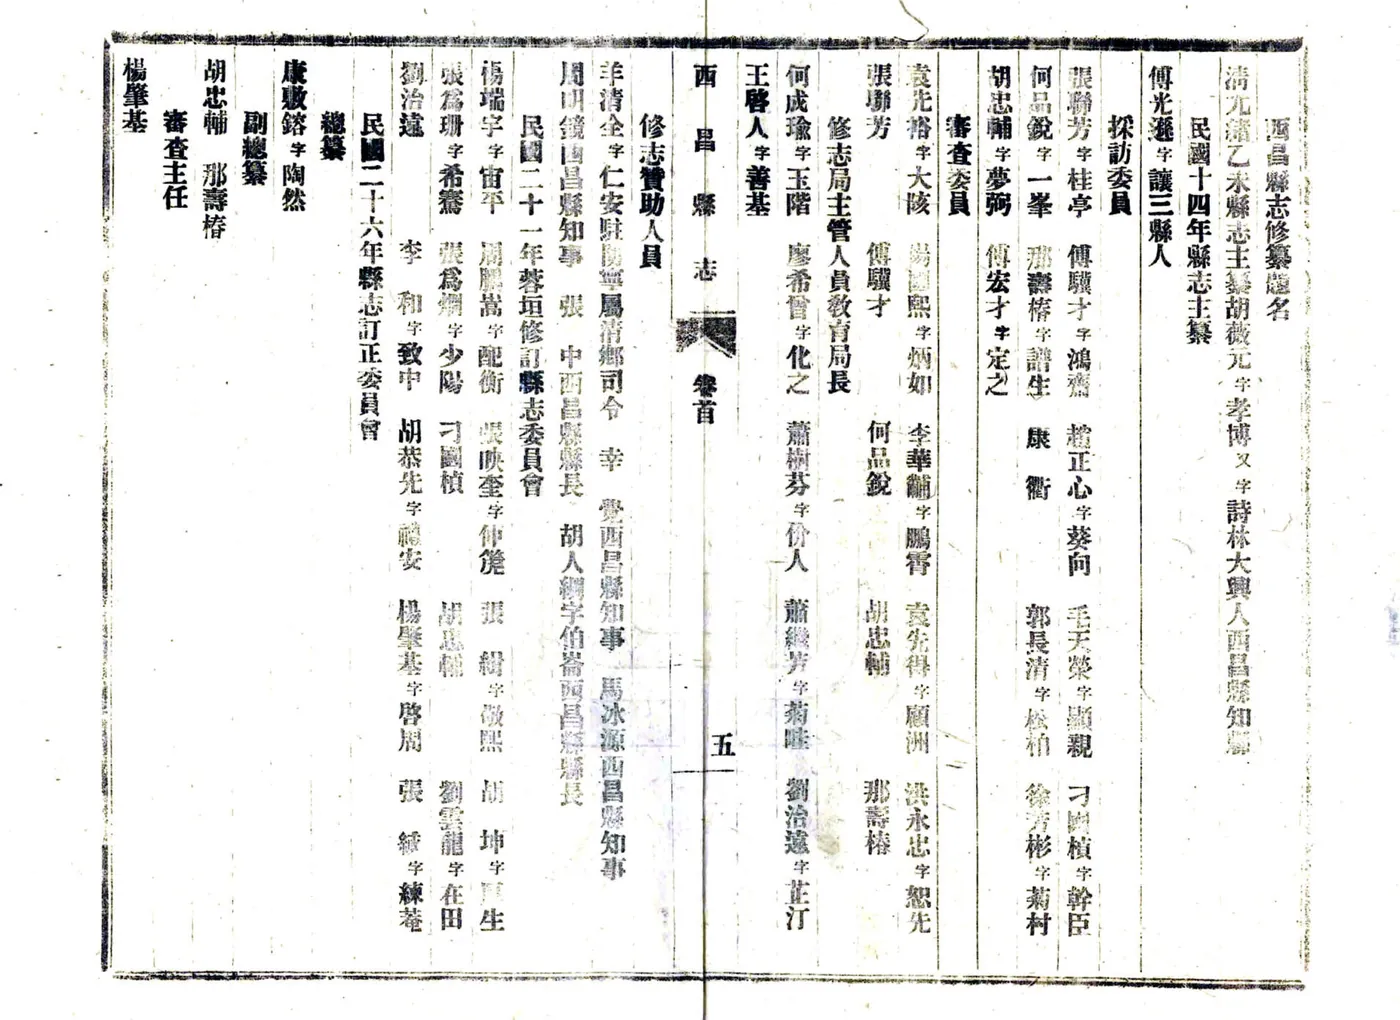 西昌縣志修纂題名
清光緒乙未縣志主纂胡薇元字孝博又字詩林大興人西昌縣知縣
民國十四年縣志主纂
傅光遜字讓三縣人
採訪委員
張聯芳字桂亭 傅驥才字鴻齋 趙正心字葵向 毛天榮字顯親 刁國楨字幹臣
何品銳字一峯 那壽椿字譜生 康衢 郭長清字松柏 徐芳彬字菊村
胡忠輔字夢弼 傅宏才字定之
審查委員
袁先裕字大陔 楊國熙字炳如 李華黼字鵬霄 袁先得字願洲 洪永忠字恕先
張聯芳 傅驥才 何品銳 胡忠輔 那壽椿
修志局主管人員教育局長
何成瑜字玉階 廖希曾字化之 蕭樹芬字份人 蕭繼芳字菊畦 劉治遠字芷汀
王啓人字善基
西昌縣志 卷首 五
修志贊助人員
羊清全字仁安駐 寧屬清鄉司令 幸覺西昌縣知事 馬冰源西昌縣知事
周明鏡西昌縣知事 張中西昌縣縣長 胡人綱字伯崙西昌縣縣長
民國二十一年蓉垣修訂縣志委員會
楊端宇字宙平 周鵬嵩字配衡 張映奎字仲箎 張緝字敬熙 胡坤字 生
張爲珊字希騫 張爲炯字少陽 刁國楨 胡忠輔 劉雲龍字在田
劉治遠 李和字致中 胡恭先字禮安 楊肇基字啓周 張 字練菴
民國二十六年縣志訂正委員會
總纂
康敷鎔字陶然
副總纂
胡忠輔 那壽椿
審查主任
楊肇基